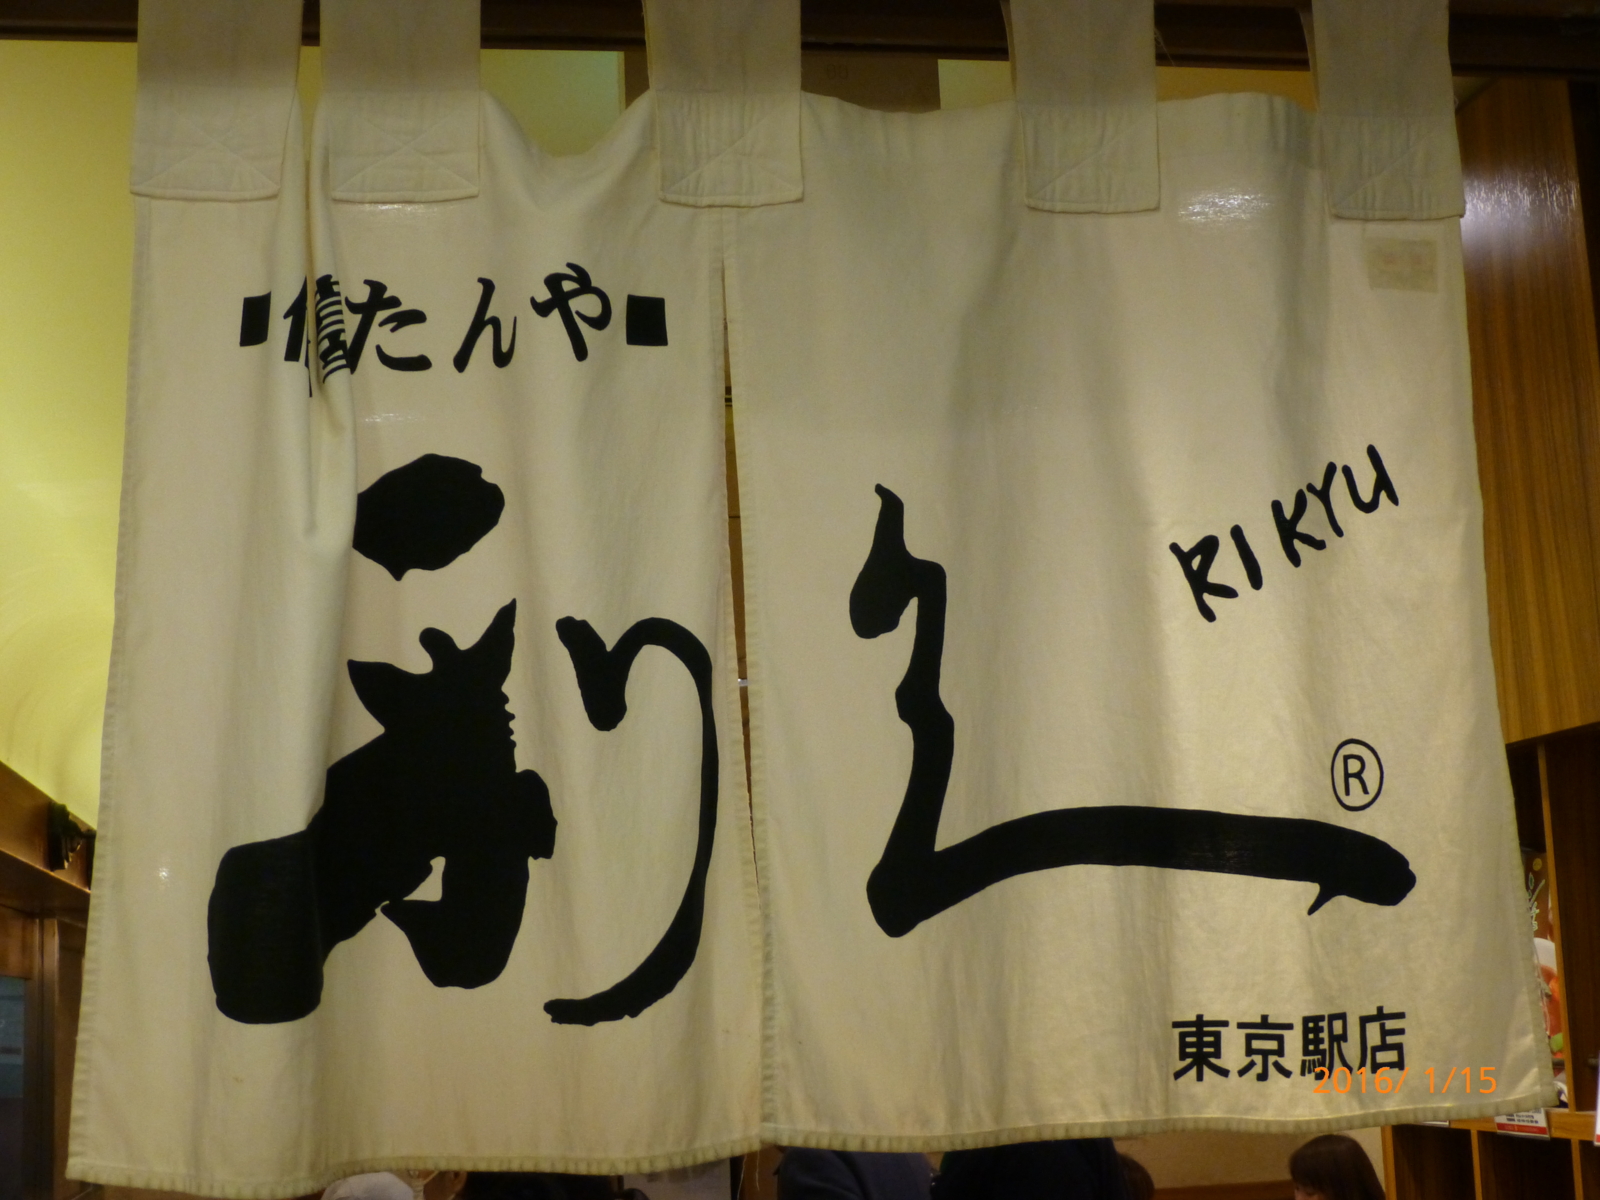 たんや
利久
RIKYU
®
東京駅店
2016/ 1/15